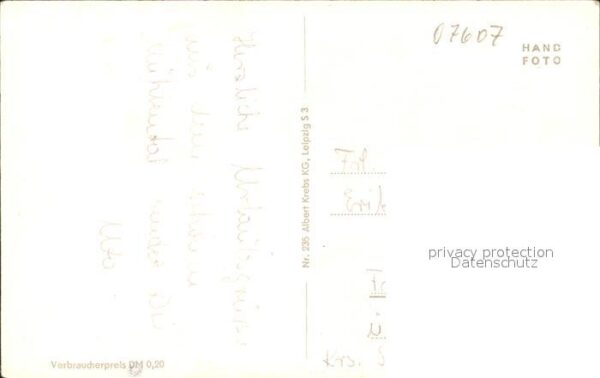 07607
HAND
FOTO
Herzliche Urlaubsgrüße
aus dem schönen
Mühlental sendet Dir
Nr. 235 Albert Krebs KG, Leipzig S 3
Frl.
privacy protection
Datenschutz
Krs. S
Verbraucherpreis DM 0,20